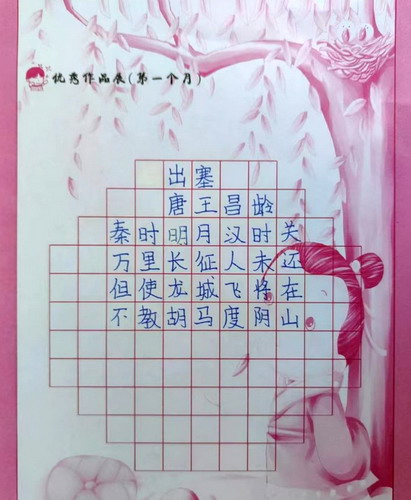 优秀作品展(第一个月)
出塞
唐王昌龄
秦时明月汉时关
万里长征人未还
但使龙城飞将在
不教胡马度阴山